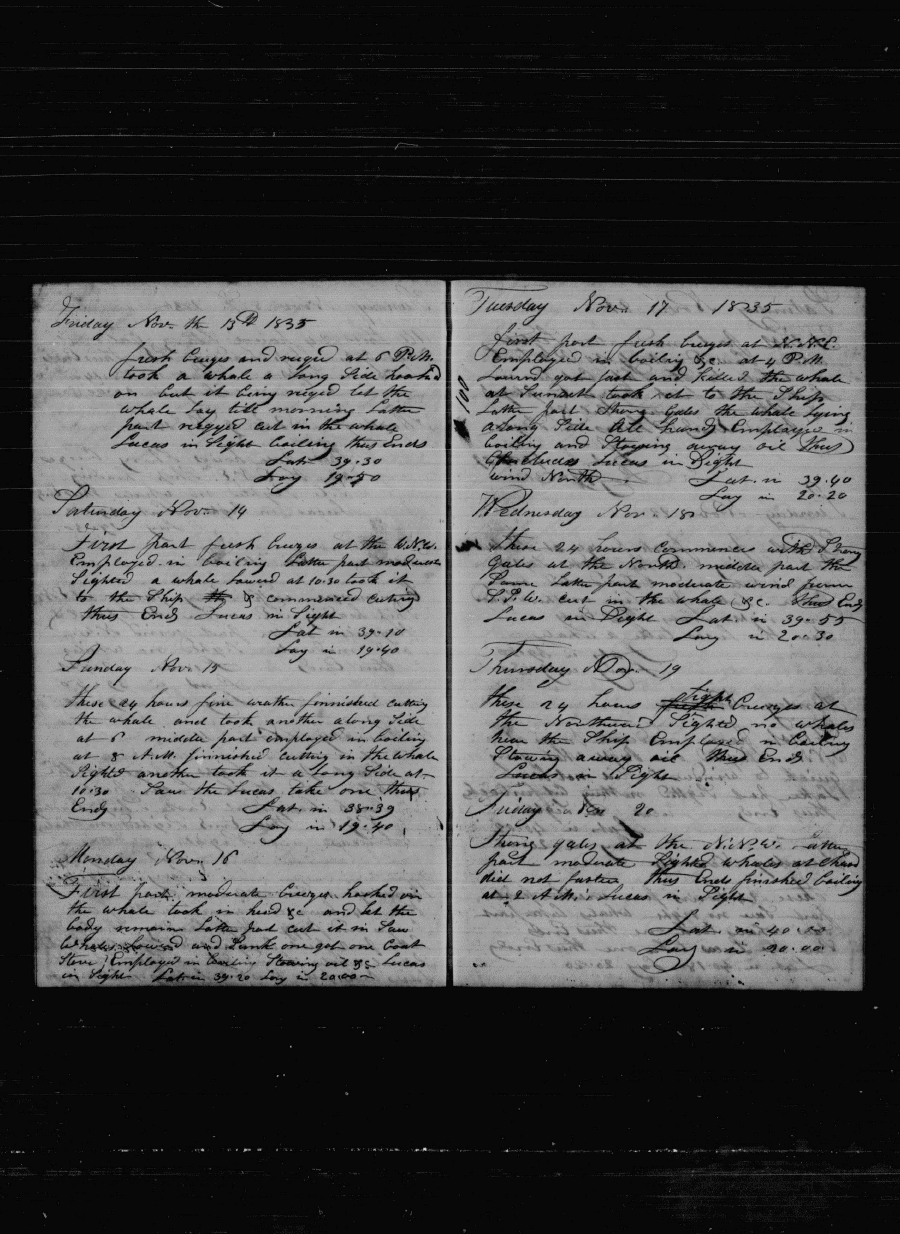 Friday Nov. th 13th 1835
fresh breezes and ruged at 6 P.M.
took a whale a long Side hooked
on but it being ruged let the
whale lay till morning Latter
part rugged cut in the whale
Lucas in Sight boiling thus Ends
Lat 39.30
Long 19.50
Saturday Nov. 14
First part fresh breezes at the W.N.W.
Employed in boiling Latter part moderate
Sighted a whale lowerd at 10.30 took it
to the Ship & commenced cuting
thus Ends Lucas in Sight
Lat in 39.10
Long in 19.40
Sunday Nov. 15
these 24 hours fine weather finnished cutting
the whale and took another along Side
at 6 middle part employed in boiling
at 8 A.M. finnished cutting in the whale
Sighted another took it a long Side at
10.30 Saw the Lucas take one thus
Ends Lat. in 38.39
Long in 19.40
Monday Nov. 16
First part moderate breezes hooked on
the whale took in head &c and let the
body remain Latter part cut it in Saw
Whales Lowerd and Sunk one got one Boat
Stove Employed in boiling Stowing oil &c Lucas
in Sight Lat in 39.20 Long in 20.00
Tuesday Nov. 17 1835
first part fresh breezes at N.N.E.
Employed in boiling &c. at 4 P.M.
Lowerd got fast and killed the whale
at Sunset took it to the Ship
100
Latter part Strong Gales the whale lying
along Side All hands Employed in
boiling and Stowing away oil thus
Concludes Lucas in Sight
wind North Lat. in 39.40
Long in 20.20
Wednesday Nov 18
these 24 hours commences with Strong
Gales at the North middle part the
Same Latter part moderate wind from
S.S.W. cut in the whale &c. thus Ends
Lucas in Sight Lat. in 39.55
Long in 20.30
Thursday Nov. 19
these 24 hours light breezes at
the Northward Sighted no whales
near the Ship Employed in boiling
Stowing away oil thus Ends
Lucas in Sight
Friday 20
Strong gales at the N.N.W. Latter
part moderate Sighted whales at
did not fasten thus Ends finished boiling
at 2 A.M. Lucas in Sight
Lat. in 40.00
Long in 20.00